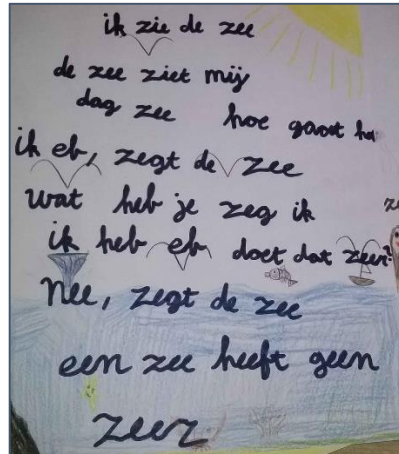 ik zie de zee
de zee ziet mij
dag zee hoe gaat he
ik eb, zegt de zee
wat heb je zeg ik
ik heb eb doet dat zeer?
Nee, zegt de zee
een zee heeft geen
zeer